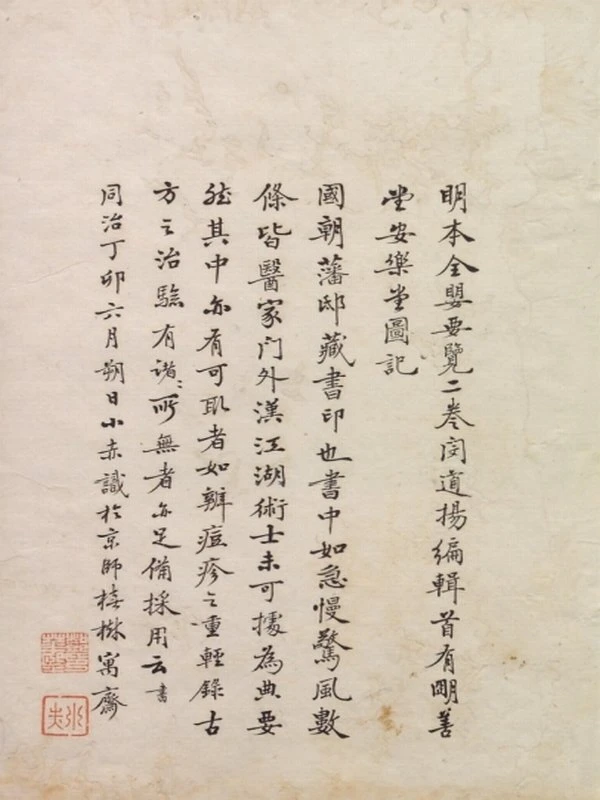 明本全嬰要覽二卷閔道揚編輯首有明善
堂安樂堂圖記
國朝藩邸藏書印也書中如急慢驚風數
條皆醫家門外漢江湖術士未可據為典要
然其中亦有可取者如辨痘疹之重輕錄古
方之治驗有諸所無者亦足備採用云書
同治丁卯六月朔日小赤識於京師椿樹寓齋